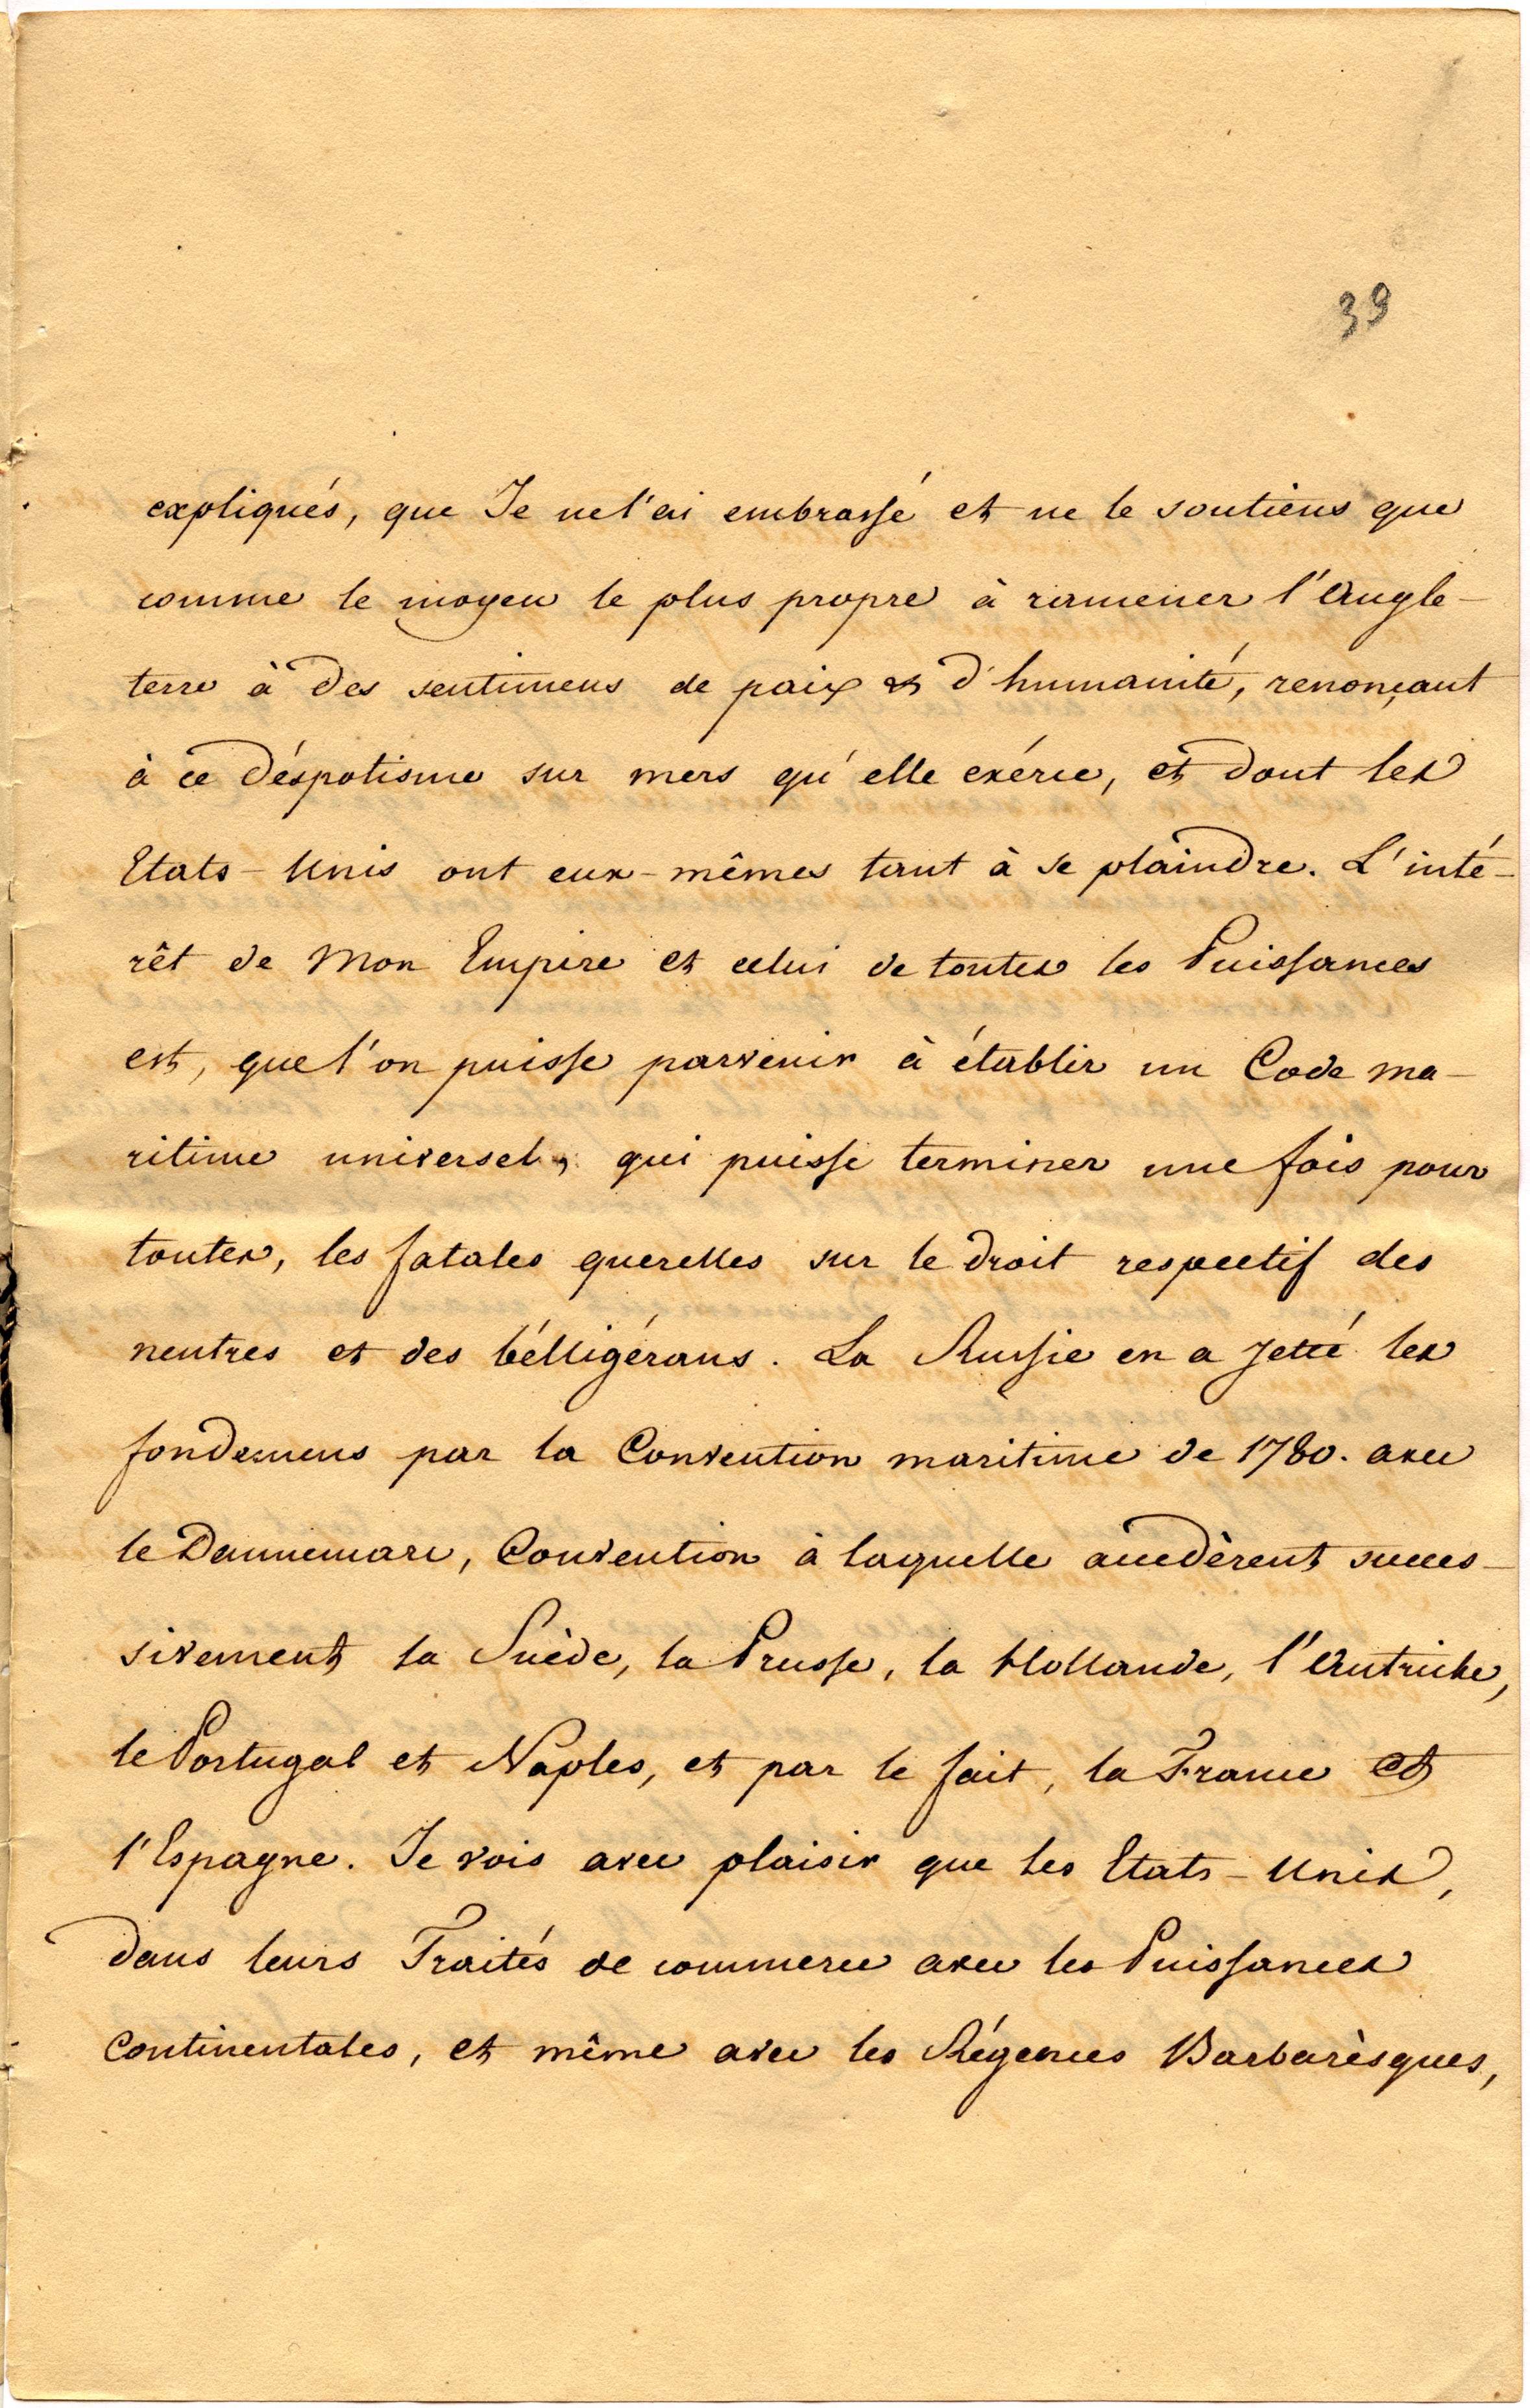 39
expliqués, que Je ne l'ai embrassé et ne le soutiens que
comme le moyen le plus propre à ramener l'Angle-
terre à des sentimens de paix & d'humanité, renonçant
à ce déspotisme sur mers qu'elle exérce, et dont les
Etats-Unis ont eux-mêmes tant à se plaindre. L'inté-
rêt de Mon Empire et celui de toutes les Puissances
est, que l'on puisse parvenir à établir un Code ma-
ritime universel, qui puisse terminer une fois pour
toutes, les fatales querelles sur le droit respectif des
neutres et des bélligérans. La Russie en a jetté les
fondemens par la Convention maritime de 1780. avec
le Dannemarc, Convention à laquelle accédèrent succes-
sivement la Suède, la Prusse, la Hollande, l'Autriche,
le Portugal et Naples, et par le fait, la France et
l'Espagne. Je vois avec plaisir que les Etats-Unis,
dans leurs Traités de commerce avec les Puissances
continentales, et même avec les Régences Barbarèsques,